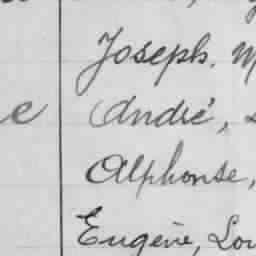 Joseph. M
e André,
Alphonse,
Eugène, Lou